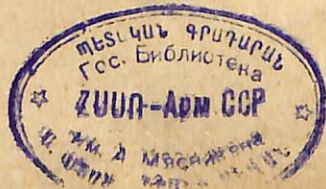 ՊԵՏԱԿԱՆ ԳՐԱԴԱՐԱՆ
Гос. Библиотека
ՀՍՍՌ-Арм ССР
им. А. Мясникяна